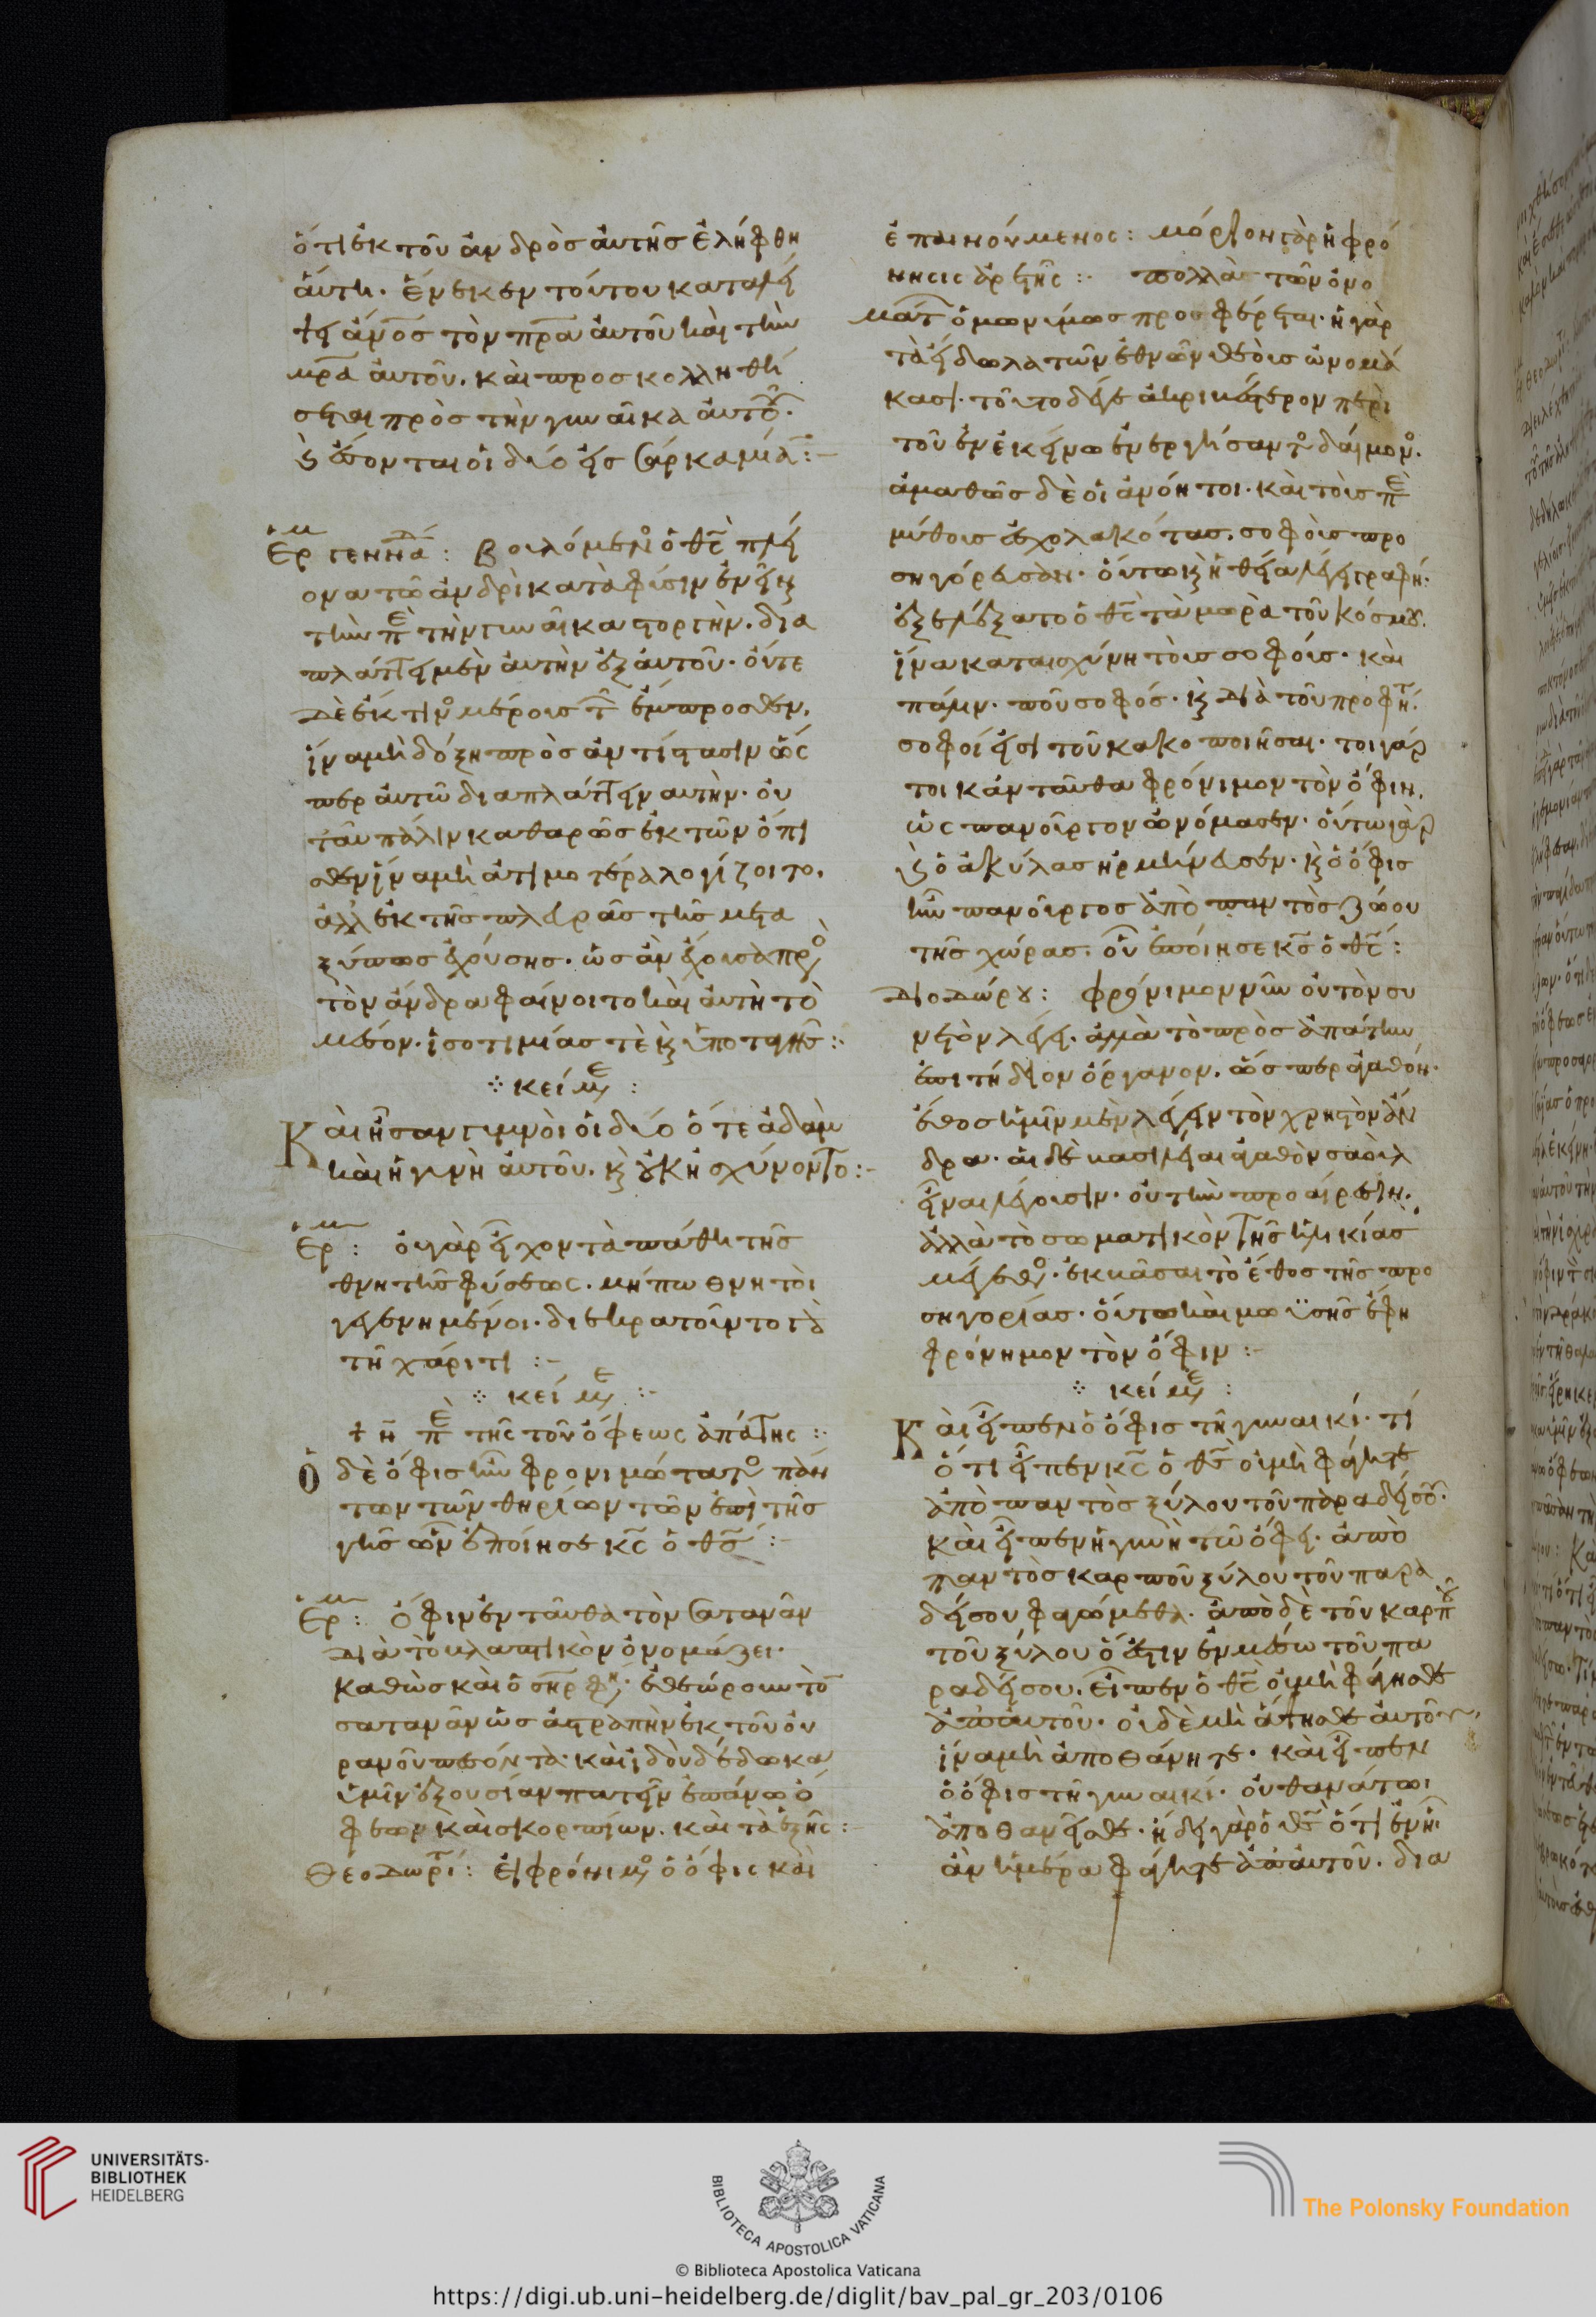 ὅτι ἐκ τοῦ ἀνδρὸς αὐτῆς ἐλήφθη
αὕτη. ἕνεκεν τούτου καταλεί
ψει ἄνος τὸν πρα αὐτοῦ καὶ τὴν
μρα αὐτοῦ. καὶ προσκολληθή
σεται πρὸς τὴν γυναῖκα αὐτοῦ.
καὶ ἔσονται οἱ δύο εἰς σάρκα μίαν:-
Ἑρμ Γενναδ: Βουλόμενος ὁ θς πλεῖ
ον τῶ ἀνδρὶ κατὰ φύσιν ἐνεῖναι
τὴν περὶ τὴν γυναῖκα στοργὴν. δια
πλάττει μὲν αὐτὴν ἐξ αὐτοῦ. οὔτε
δὲ ἔκ τινος μέρους τῶν ἔμπροσθεν.
ἵνα μὴ δόξη πρὸς ἀντίστασιν ὥσ
περ αὐτῶ διαπλάττειν αὐτὴν. οὐ
τ' αὖ πάλιν καθαρῶς ἐκ τῶν ὄπι
σθεν ἵνα μὴ ἀτιμοτέρα λογίζοιτο.
ἀλλ' ἐκ τῆς πλευρᾶς τῆς μετα
ξύ πως ἐχούσης. ὡς ἂν ἔχουσα πρὸς
τὸν ἄνδρα φαίνοιτο καὶ αὐτὴ τὸ
μέσον. ἰσοτιμίας τὲ καὶ ὑποταγῆς:-
κείμε:
Καὶ ἦσαν γυμνοὶ οἱ δύο ὅ τε ἀδὰμ
καὶ ἡ γυνὴ αὐτοῦ. καὶ οὐκ ἠσχύνοντο:-
Ἑρμ: οὐ γὰρ εἶχον τὰ πάθη τῆς
θνητῆς φύσεως. μήπω θνητοὶ
γεγενημένοι. διεκρατοῦντο γὰ
τῆ χάριτι:-
κείμε:-
ἡ περὶ τῆς τοῦ ὄφεως ἀπάτης:-
Ὁ δὲ ὄφις ἦν φρονιμώτατος πάν
των τῶν θηρίων τῶν ἐπὶ τῆς
γῆς ὧν ἐποίησε κς ὁ θς:-
Ἑρμ: Ὄφιν ἐνταῦθα τὸν σατανᾶν
διὰ τὸ βλαπτικὸν ὀνομάζει.
καθὼς καὶ ὁ σηρ φη. ἐθεώρουν τὸν
σατανᾶν ὡς ἀστραπὴν ἐκ τοῦ οὐ
ρανοῦ πεσόντα. καὶ ἰδοὺ δέδωκα
ὑμῖν ἐξουσίαν πατεῖν ἐπάνω ὄ
φεων καὶ σκορπίων. καὶ τὰ ἑξῆς:
Θεοδωρίτ: Εἰ φρόνιμος ὁ ὄφις καὶ
ἐπαινούμενος: μόριον γὰρ ἡ φρό
νησις ἀρετῆς:- πολλὰ τῶν ὀνο
μάτ ὁμωνύμως προσφέρεται. ἢ γὰρ
τὰ εἴδωλα τῶν ἐθνῶν θεοὺς ὠνομά
κασι. τοῦτο δέ γε ἀκριβέστερον περὶ
τοῦ ἐν ἐκείνω ἐνεργήσαντος δαίμονος.
ἀμαθῶς δὲ οἱ ἀνόητοι. καὶ τοὺς περὶ
μύθους ἐσχολακότας. σοφοὺς προ
σηγόρευσαν. οὕτω καὶ ἡ θεία λέγει γραφή.
ἐξελέξατο ὁ θς τὰ μωρὰ τοῦ κόσμου.
ἵνα καταισχύνη τοὺς σοφούς. καὶ
πάλιν. ποῦ σοφός. καὶ διὰ τοῦ προφήτ.
σοφοί εἰσι τοῦ κακοποιῆσαι. τοιγάρ
τοι κἀνταῦθα φρόνιμον τὸν ὄφιν.
ὡς πανοῦργον ὠνόμασεν. οὕτω γὰρ
καὶ ὁ ἀκύλας ἡρμήνευσεν. καὶ ὁ ὄφις
ἦν πανοῦργος ἀπὸ παντὸς ζώου
τῆς χώρας. οὗ ἐποίησε κς ὁ θς:
Διοδώρου: φρόνιμον νῦν οὐ τὸν συ
νετὸν λέγει. ἀλλὰ τὸ πρὸς ἀπάτην
ἐπιτήδειον ὄργανον. ὥσπερ ἀγαθόν.
ἔθος ἡμῖν μὲν λέγειν τὸν χρηστὸν ἄν
δρα. αἱ δὲ βασιλεῖαι ἀγαθὸν σαοὺλ
εἶναι λέγουσιν. οὐ τὴν προαίρεσιν.
ἀλλὰ τὸ σωματικὸν τῆς ἡλικίας
μέγεθος. ἐκβιᾶσαι τὸ ἔθος τῆς προ
σηγορίας. οὕτω καὶ μωϋσῆς ἔφη
φρόνημον τὸν ὄφιν:-
κείμε:
Καὶ εἶπεν ὁ ὄφις τῆ γυναικί. τί
ὅτι εἶπεν κς ὁ θς οὐ μὴ φάγητε
ἀπὸ παντὸς ξύλου τοῦ παραδείσου.
καὶ εἶπεν ἡ γυνὴ τῶ ὄφει. ἀπὸ
παντὸς καρποῦ ξύλου τοῦ παρα
δείσου φαγώμεθα. ἀπὸ δὲ τοῦ καρποῦ
τοῦ ξύλου ὅ ἐστιν ἐν μέσω τοῦ πα
ραδείσου. εἶπεν ὁ θς οὐ μὴ φάγησθε
ἀπ' αὐτοῦ. οὐδὲ μὴ ἅψησθε αὐτοῦ.
ἵνα μὴ ἀποθάνητε. καὶ εἶπεν
ὁ ὄφις τῆ γυναικί. οὐ θανάτωι
ἀποθανεῖσθε. ἤδει γὰρ ὁ θς ὅτι ἐν ἧι
ἂν ἡμέρα φάγητε ἀπ' αὐτοῦ. δια
UNIVERSITÄTS-
BIBLIOTHEK
HEIDELBERG
BIBLIOTECA APOSTOLICA VATICANA
The Polonsky Foundation
© Biblioteca Apostolica Vaticana
https://digi.ub.uni-heidelberg.de/diglit/bav_pal_gr_203/0106